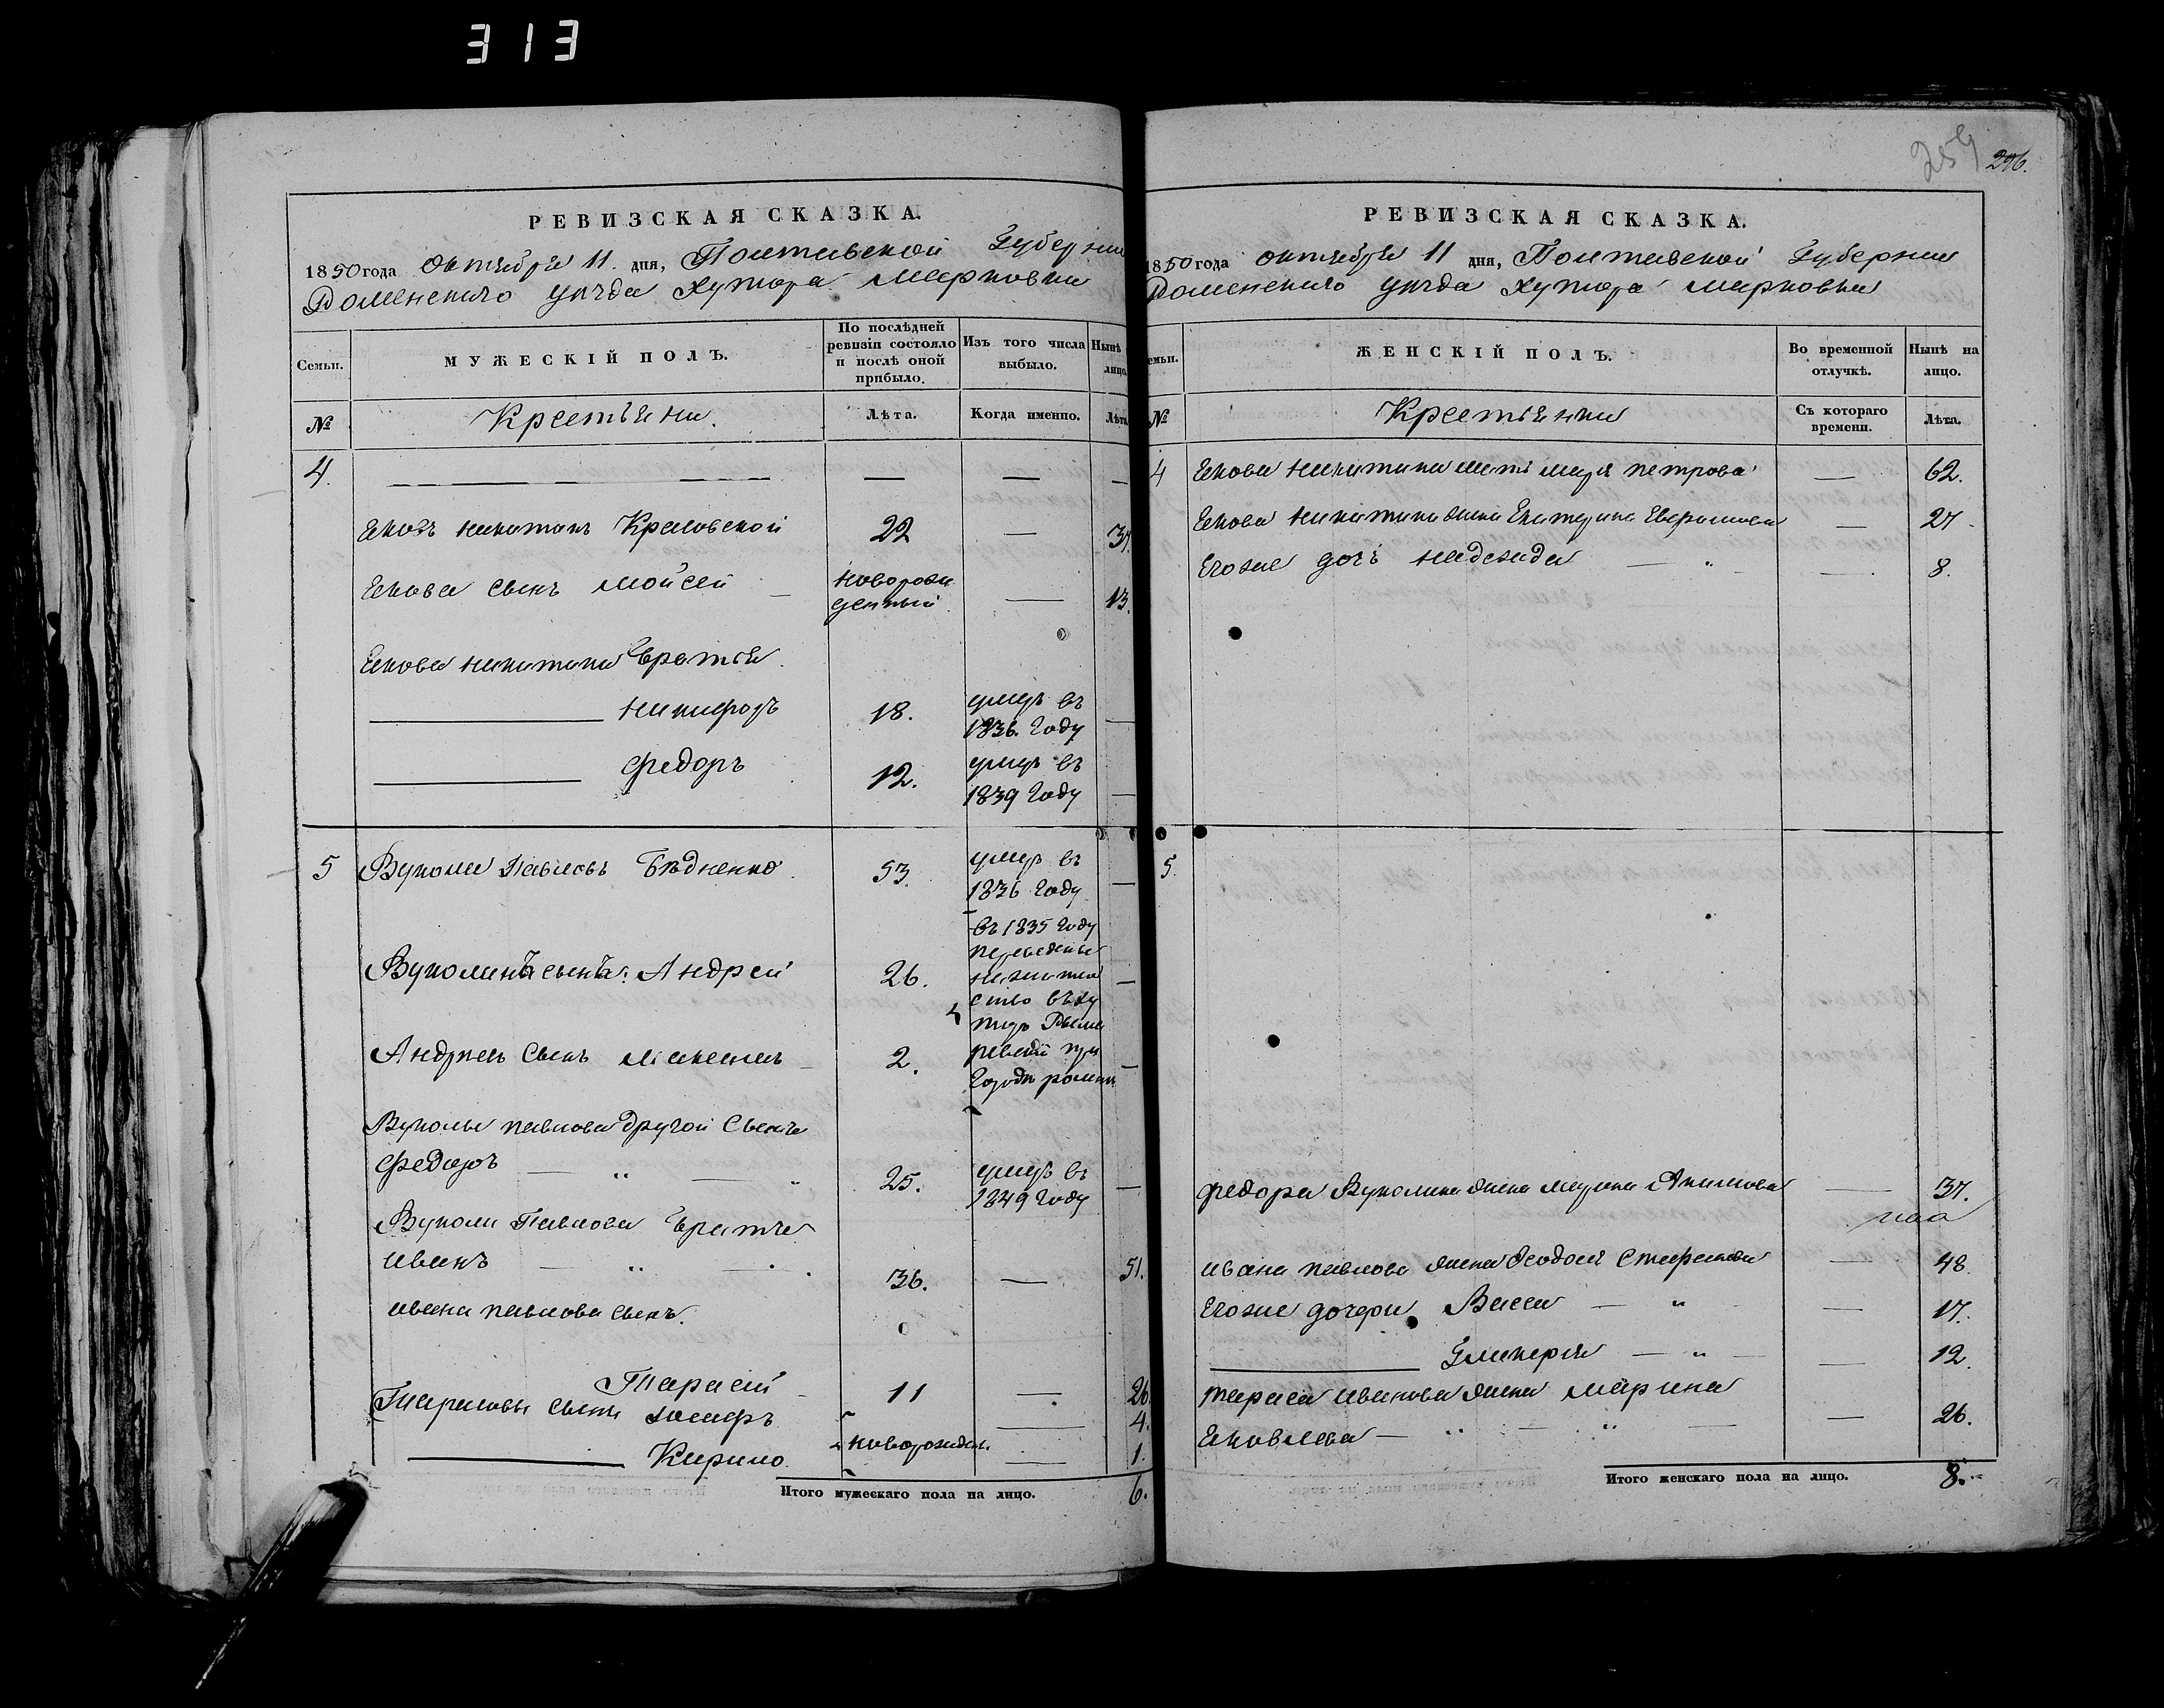 313
259
296.
РЕВИЗСКАЯ СКАЗКА.
1850 года октября 11. дня, Полтавской Губернии
Роменскаго уѣзда хутора Марковки
Семьи. МУЖЕСКІЙ ПОЛЪ. По послѣдней ревизіи состояло и послѣ оной прибыло. Изъ того числа выбыло. Нынѣ лицо.
№ Крестьяни. Лѣта. Когда именно. Лѣта
4. — — — —
Яковъ Никитинъ 22 — 37.
Якова сынъ Мойсей — новорож
денный — 13.
Якова Никитина братья
Никифоръ 18. умеръ въ
1836. Году —
Федоръ 12. умеръ въ
1839 Году —
5 Вукола Павловъ Бѣдненко. 53. умеръ въ
1836 Году —
въ 1835 Году
Вуколинъ сынъ: Андрей 26. —
Андреевъ сынъ 2. —
Вуколы Павлова другой сынъ
Федоръ — " — " 25. умеръ въ
1849 Году —
Вуколы Павлова братъ
Иванъ — " — 36. — 51.
Ивана Павлова сынъ.
Тарасій 11 — 26.
Тарасовы сыны 4.
Кирило. новорожден. — 1.
Итого мужескаго пола на лицо. 6.
РЕВИЗСКАЯ СКАЗКА.
1850 года октября 11 дня, Полтавской Губернии
Роменскаго уѣзда хутора Марковки
Семьи. ЖЕНСКІЙ ПОЛЪ. Во временной отлучкѣ. Нынѣ на лицо.
№ Крестьянки Съ котораго времени. Лѣта.
4 Якова Никитина мать Марія Петрова — 62.
Якова Никитина жена Екатерина — 27.
Егоже дочь Надежда — " — — 8.
5.
Федора Вуколина жена Марина Акимова — 37.
Ивана Павлова жена Феодосія Стефанова — 48.
Егоже дочери Васса — " — 17.
Гликерія — " — — 12.
Тараса Иванова жена Марина
Яковлева — " — " — — 26.
Итого женскаго пола на лицо. 8.